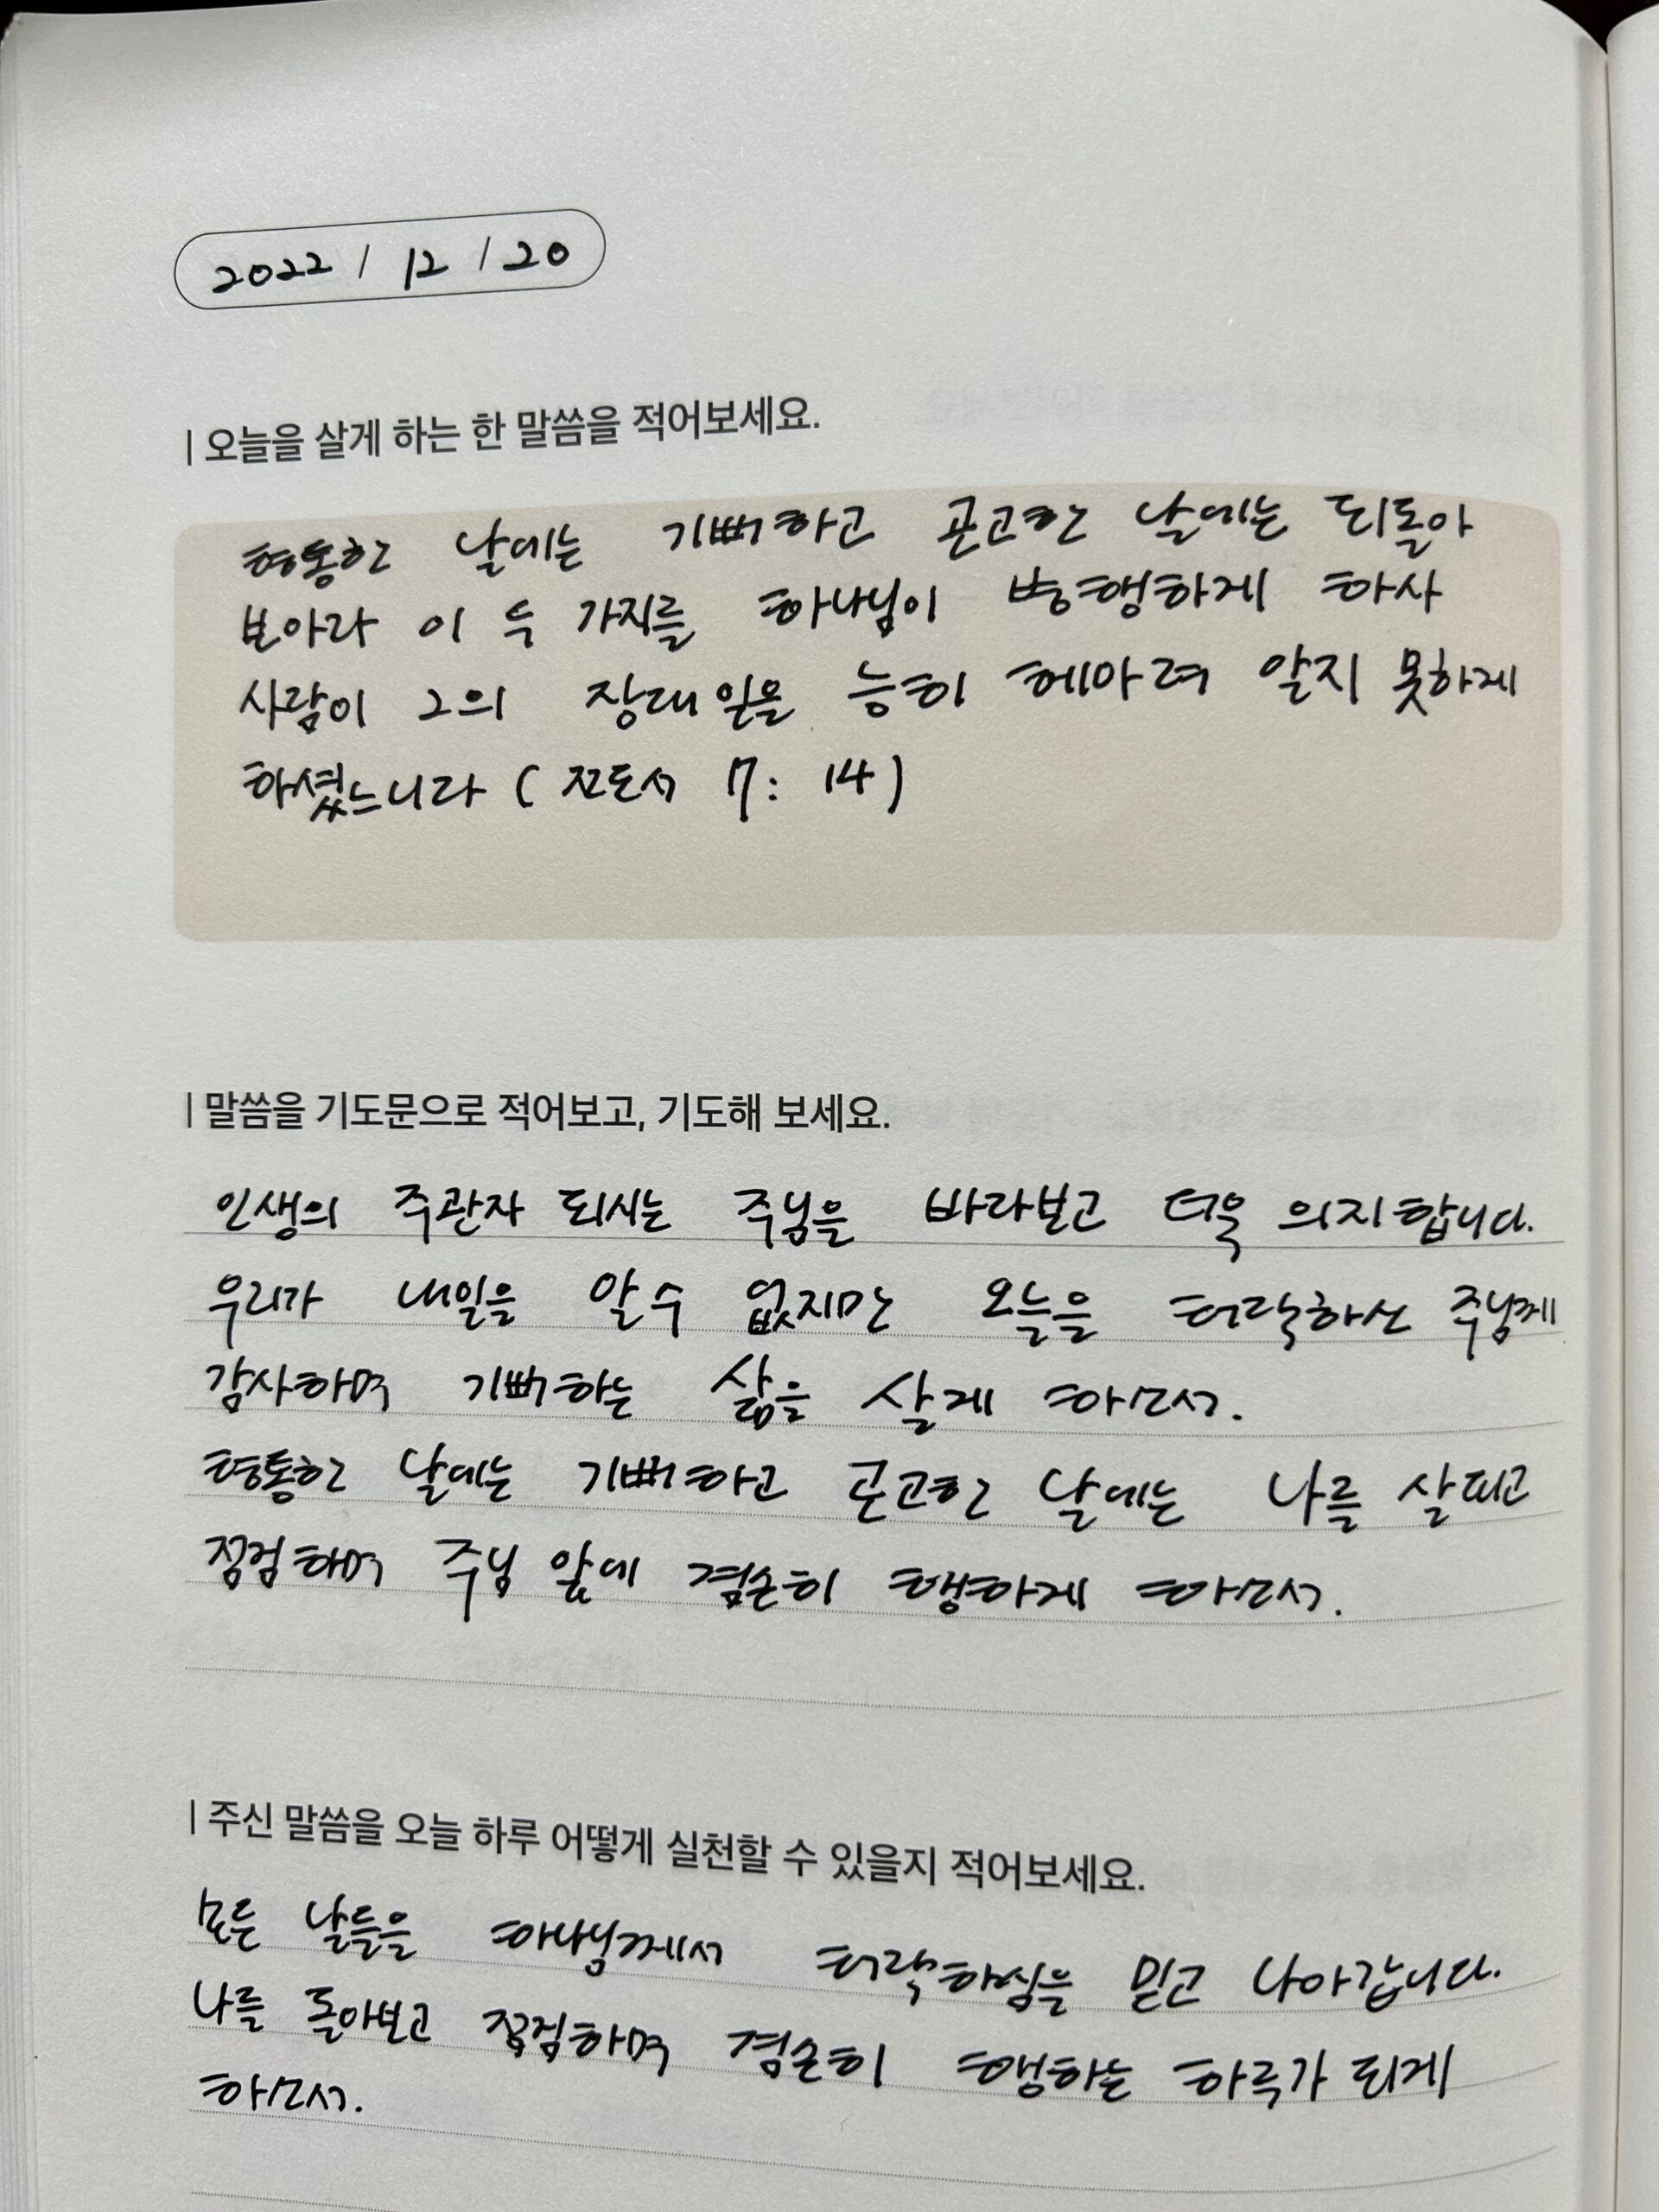 2022 / 12 / 20
| 오늘을 살게 하는 한 말씀을 적어보세요.
형통한 날에는 기뻐하고 곤고한 날에는 되돌아
보아라 이 두 가지를 하나님이 병행하게 하사
사람이 그의 장래일을 능히 헤아려 알지 못하게
하셨느니라 ( 전도서 7 : 14 )
| 말씀을 기도문으로 적어보고, 기도해 보세요.
인생의 주관자 되시는 주님을 바라보고 더욱 의지합니다.
우리가 내일을 알 수 없지만 오늘을 허락하신 주님께
감사하며 기뻐하는 삶을 살게 하소서.
형통한 날에는 기뻐하고 곤고한 날에는 나를 살피고
점검하며 주님 앞에 겸손히 행하게 하소서.
| 주신 말씀을 오늘 하루 어떻게 실천할 수 있을지 적어보세요.
모든 날들을 하나님께서 허락하심을 믿고 나아갑니다.
나를 돌아보고 점검하며 겸손히 행하는 하루가 되게
하소서.